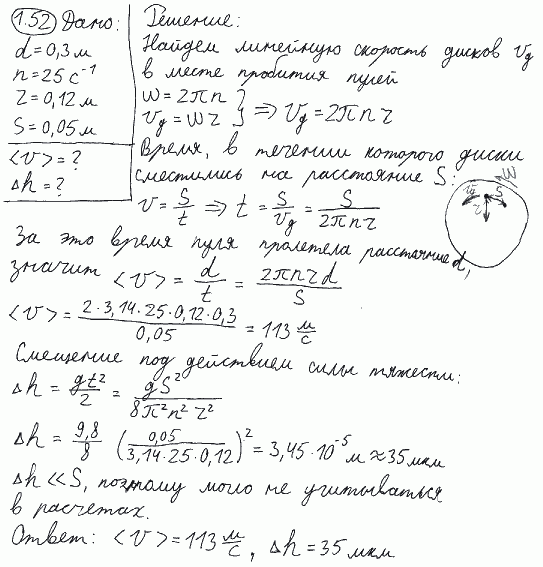 1.52 Дано:
d = 0,3 м
n = 25 с⁻¹
r = 0,12 м
S = 0,05 м
<v> = ?
Δh = ?
Решение:
Найдем линейную скорость дисков v_g
в месте пробития пулей
w = 2πn } 
v_g = wr } ⇒ v_g = 2πnr
Время, в течении которого диски
сместились на расстояние S:
v = S/t ⇒ t = S/v_g = S/(2πnr)
w
S
r
За это время пуля пролетела расстояние d,
значит <v> = d/t = 2πnrd/S
<v> = (2·3,14·25·0,12·0,3)/0,05 = 113 м/с
Смещение под действием силы тяжести:
Δh = gt²/2 = gS²/(8π²n²r²)
Δh = 9,8/8 (0,05/(3,14·25·0,12))² = 3,45·10⁻⁵ м ≈ 35 мкм
Δh << S, поэтому могло не учитываться
в расчетах.
Ответ: <v> = 113 м/с, Δh = 35 мкм